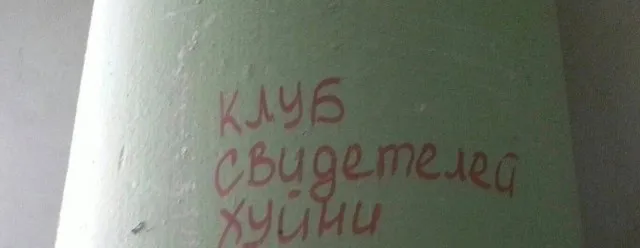 КЛУБ
свидетелей
хуйни